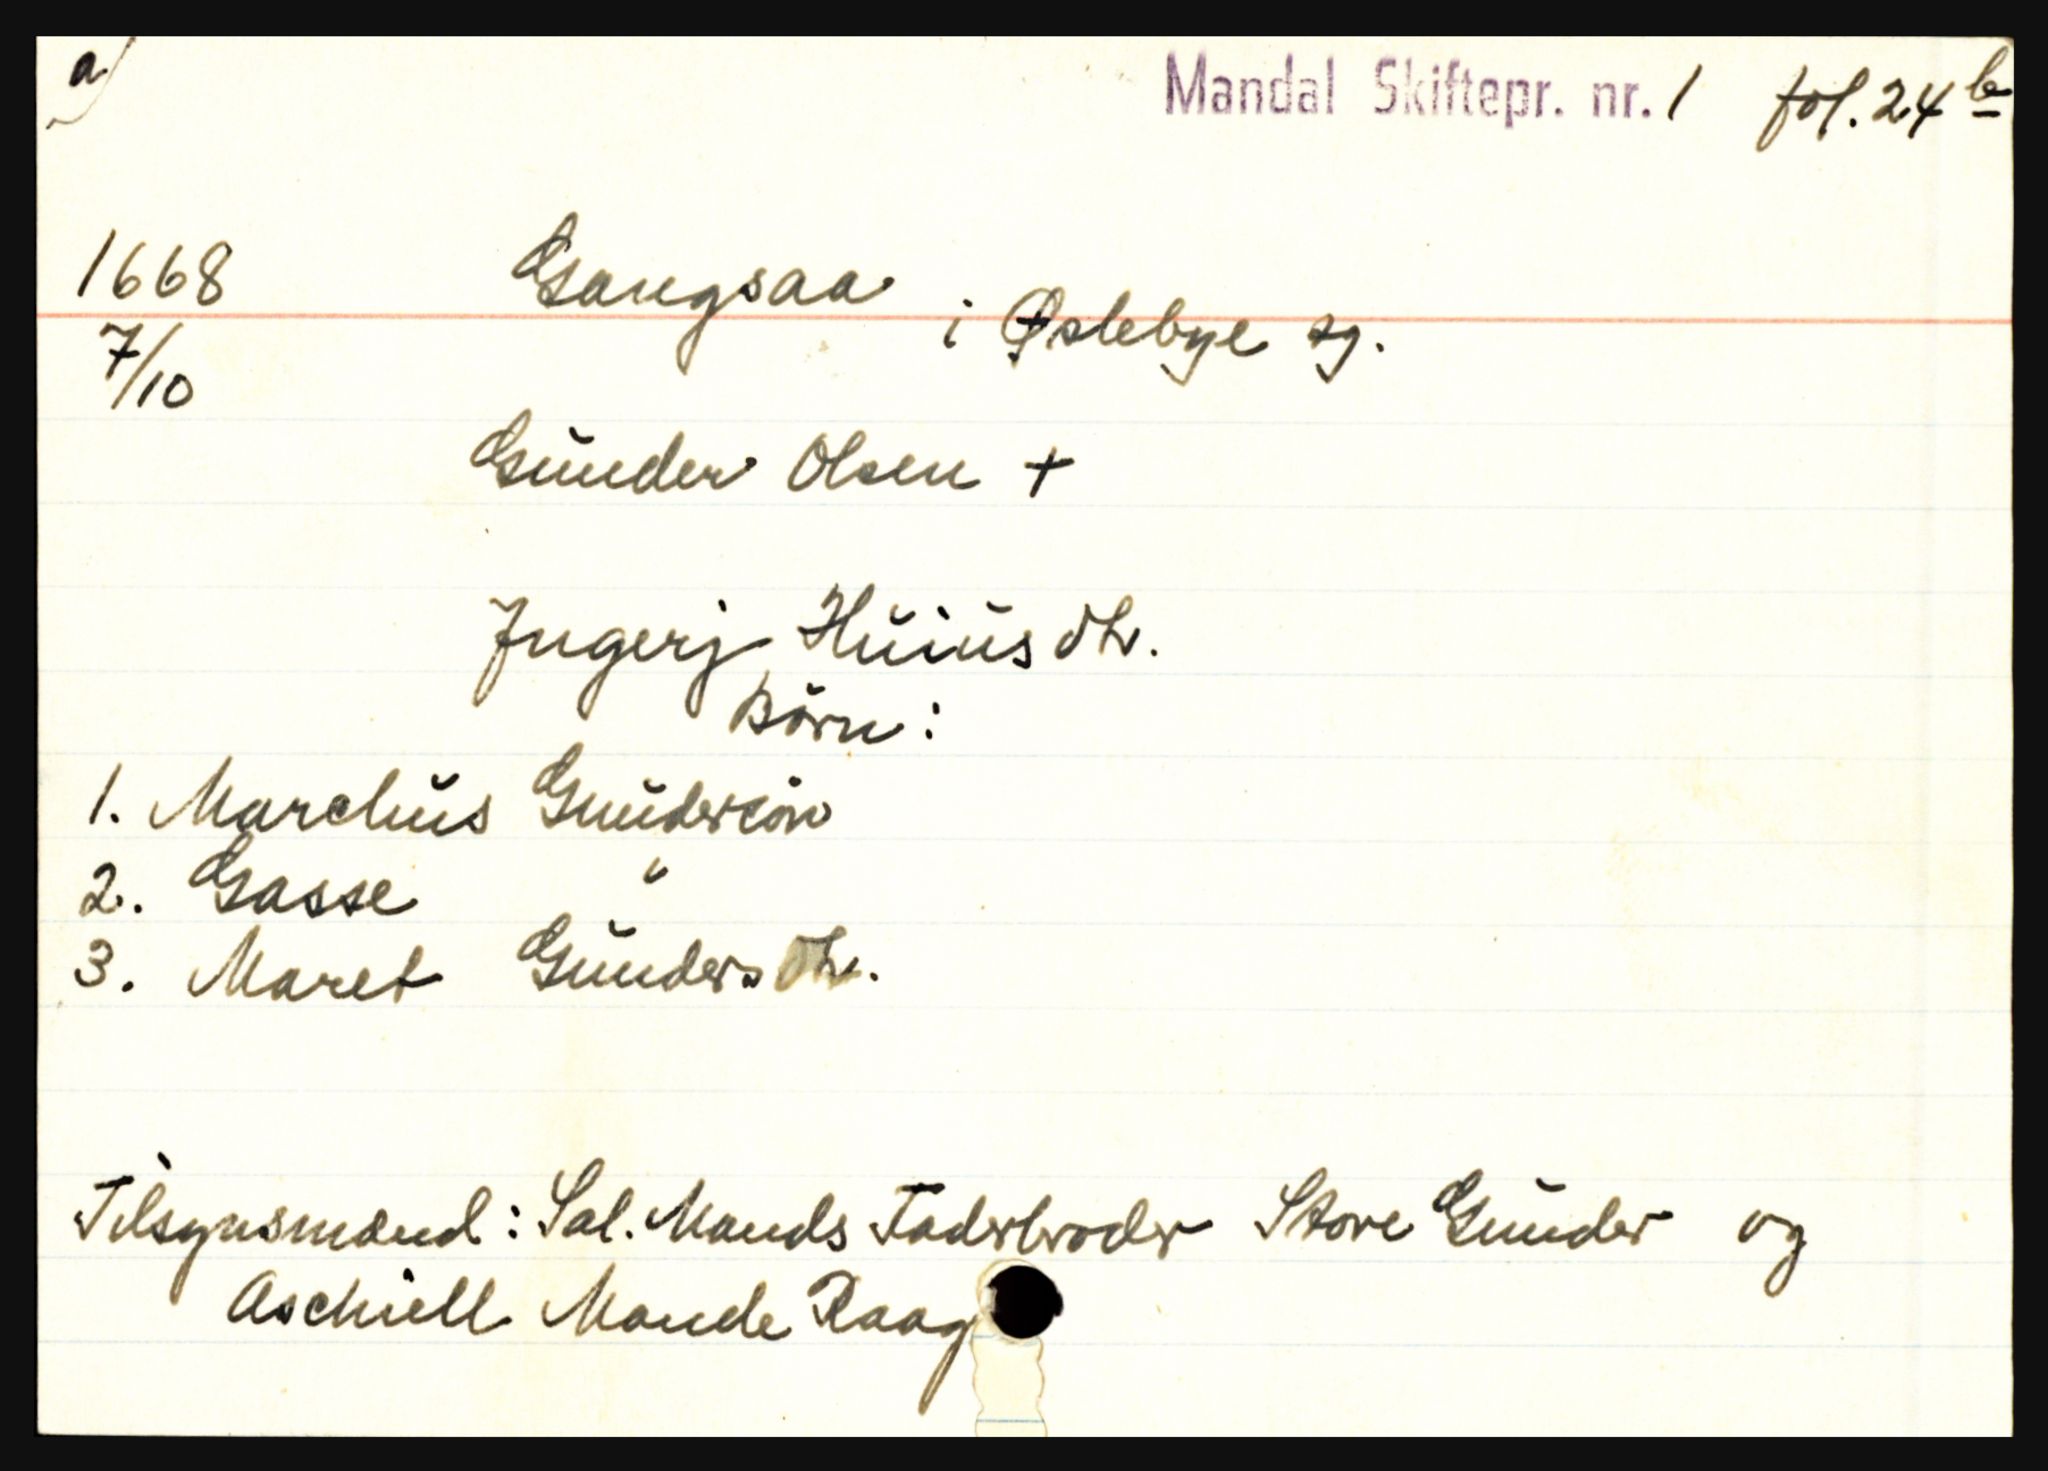 a)
Mandal Skiftepr. nr. 1 fol. 24 b
1668 Gangsaa i Øslebye sg.
7/10
Gŭnder Olsen +
Jngerj Hŭiŭs dtr.
Börn:
1. Marchŭs Gŭndersön
2. Gasse "
3. Maret Gŭnders dtr.
Tilsynsmænd: Sal. Mands Faderbroder Store Gŭnder og
Aschiell Mande Raag